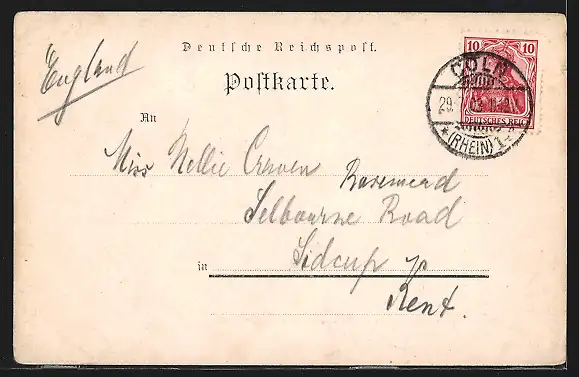 England
Deutsche Reichspost.
Postkarte.
10 10
DEUTSCHES REICH
CÖLN
29.
(RHEIN) 1
An
Miss Nellie Craven
Rosemead
Selbourne Road
in Sidcup
Kent.